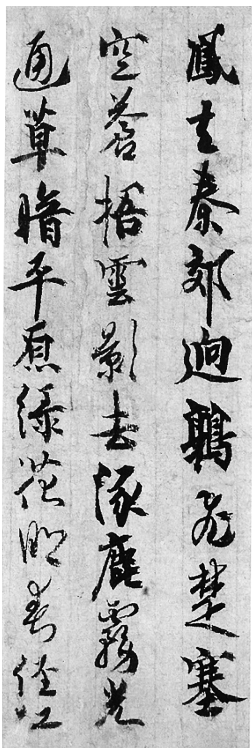 鳳去秦郊迥鶉飛楚塞
空蒼梧雲影去涿鹿霧光
通草暗平原綠花明春徑紅